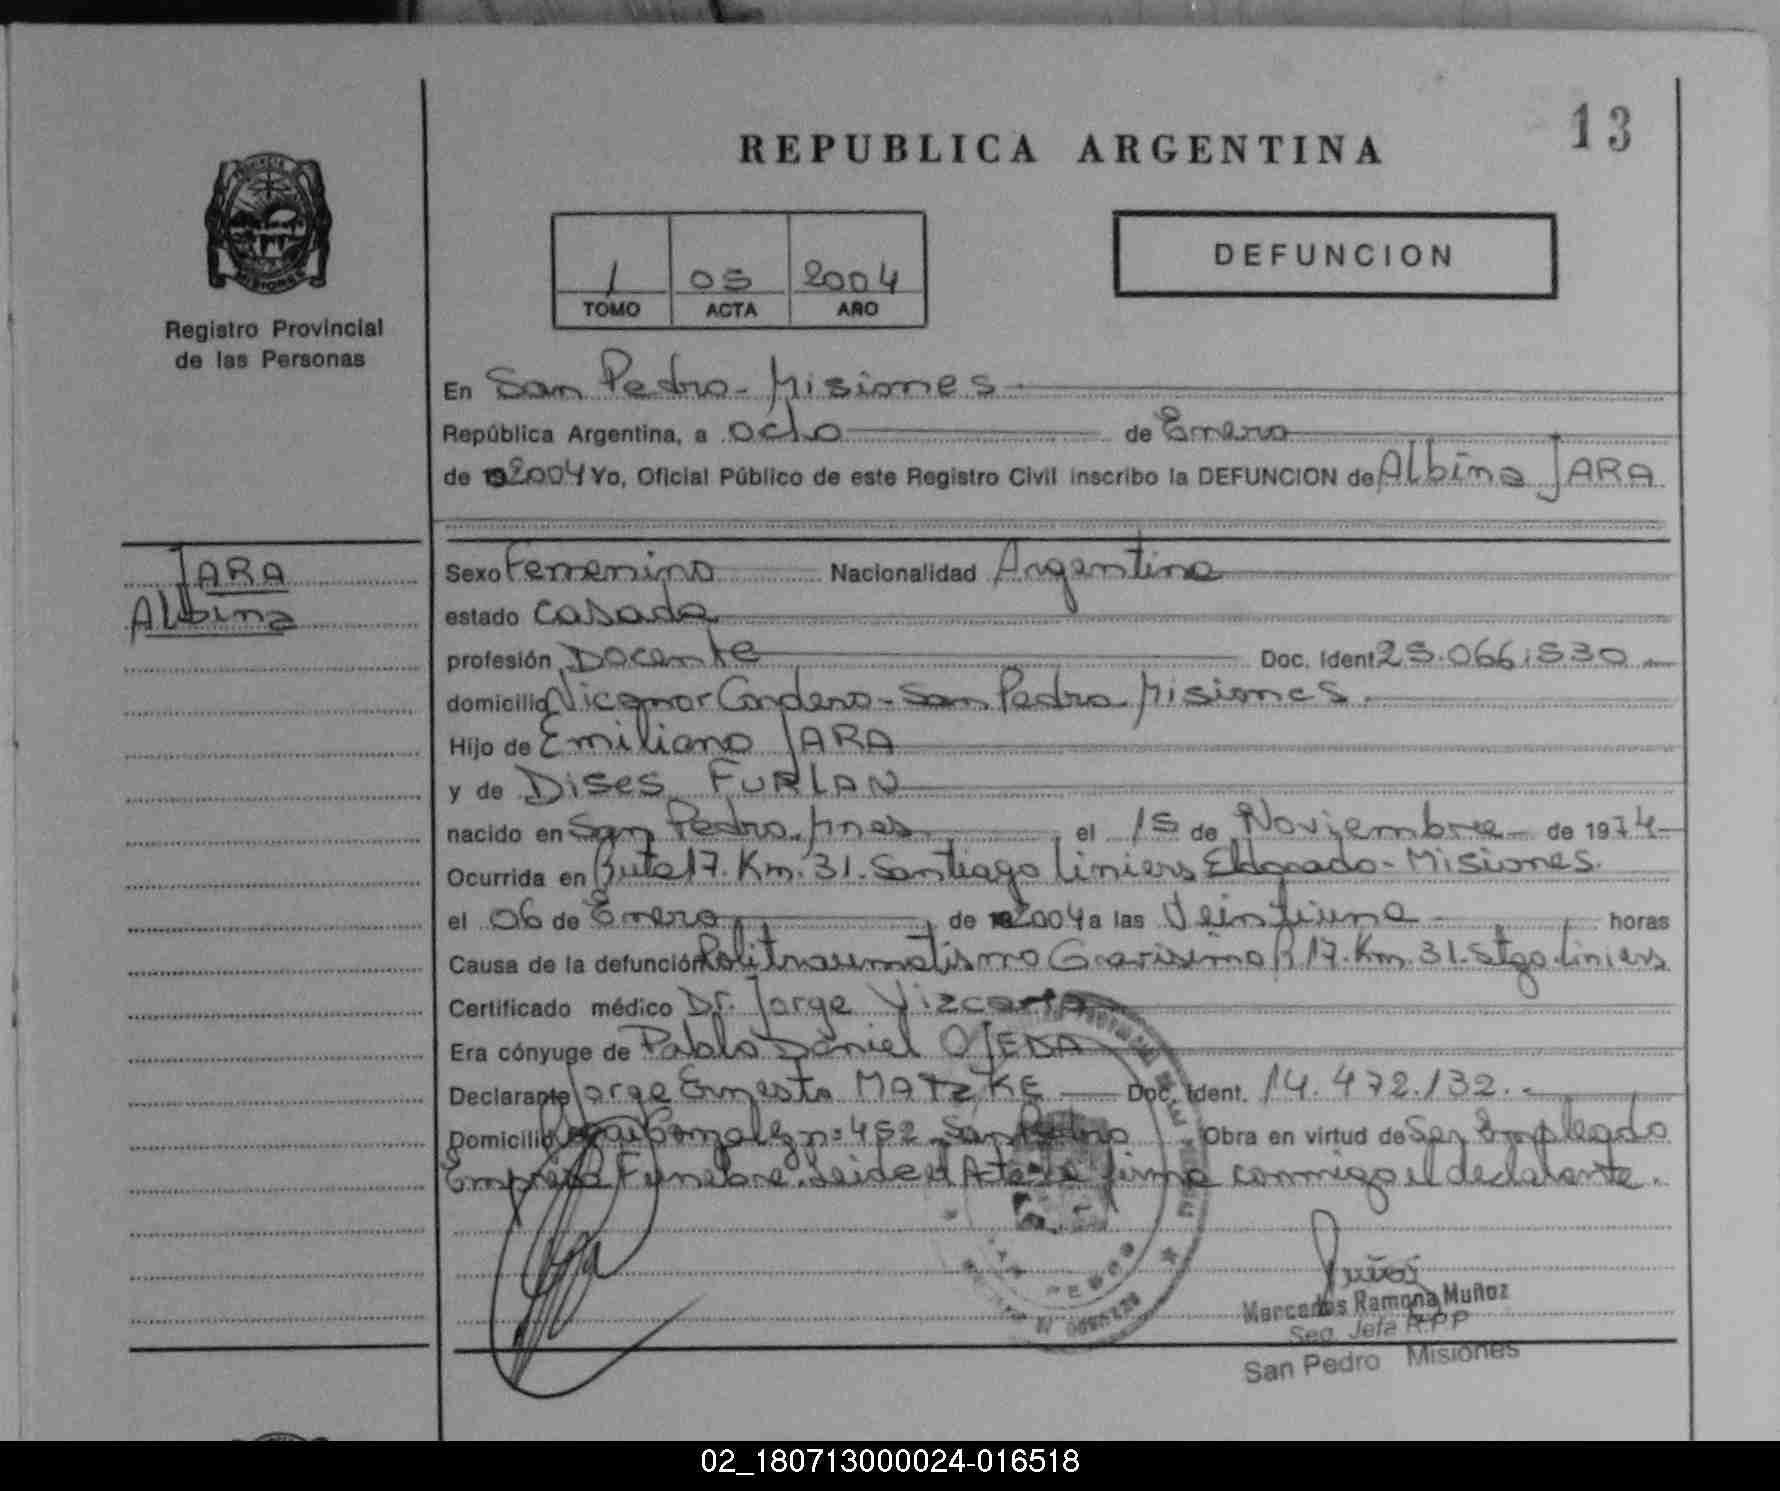 13
REPUBLICA ARGENTINA
DEFUNCION
1 05 2004
TOMO ACTA AÑO
Registro Provincial
de las Personas
En San Pedro - Misiones
República Argentina, a ocho de Enero
de 2004 Yo, Oficial Público de este Registro Civil inscribo la DEFUNCION de Albina JARA
JARA
Albina
Sexo Femenino Nacionalidad Argentina
estado Casada
profesión Docente Doc. Ident. 25.066.530
domicilio San Pedro Misiones
Hijo de Emiliano JARA
y de Dises FURLAN
nacido en San Pedro, Mnes el 15 de Noviembre de 1974
Ocurrida en Ruta 17. Km. 31. Santiago Liniers Eldorado - Misiones.
el 06 de Enero de 2004 a las Veintiuna horas
Causa de la defunción Politraumatismo Gravisimo R 17. Km. 31. Stgo. Liniers
Certificado médico Dr. Jorge
Era cónyuge de Pablo Daniel OJEDA
Declarante Jorge Ernesto MATZKE Doc. Ident. 14.472.132.-
Domicilio n: 452 San Pedro Obra en virtud de Ser Empleado
Empresa Funebre. Leida el Acta la firma conmigo el declarante.
SAN PEDRO
Mercedes Ramona Muñoz
Seg. Jefa R.P.P
San Pedro Misiones
02_180713000024-016518